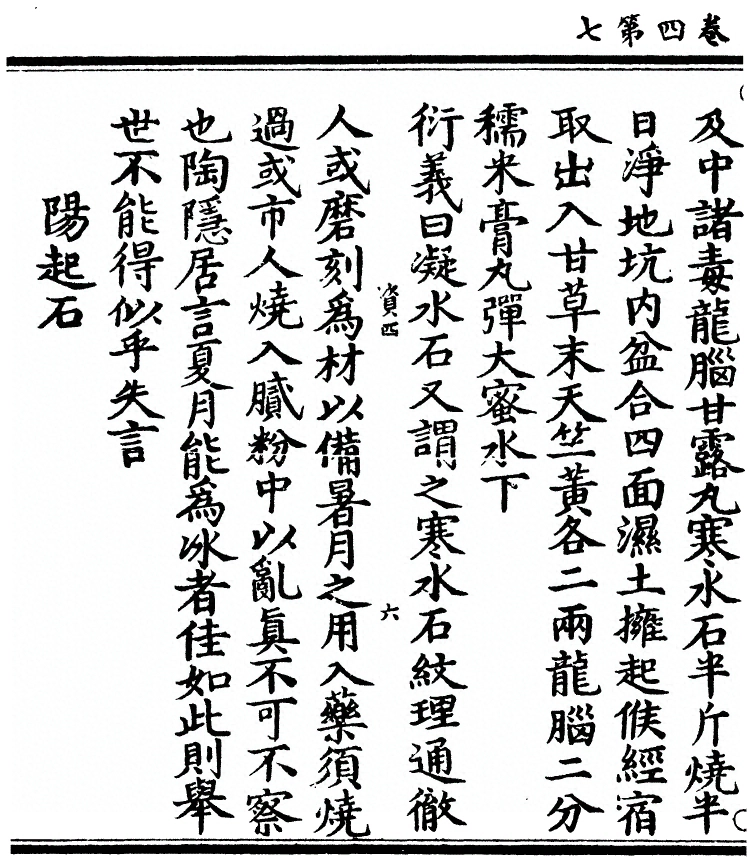 卷四第七
及中諸毒龍腦甘露丸寒水石半斤燒半
日淨地坑內盆合四面濕土擁起候經宿
取出入甘草末天竺黃各二兩龍腦二分
糯米膏丸彈大蜜水下
衍義曰凝水石又謂之寒水石紋理通徹
人或磨刻為材以備暑月之用入藥須燒
過或市人燒入膩粉中以亂真不可不察
也陶隱居言夏月能為冰者佳如此則舉
世不能得似乎失言
陽起石
六